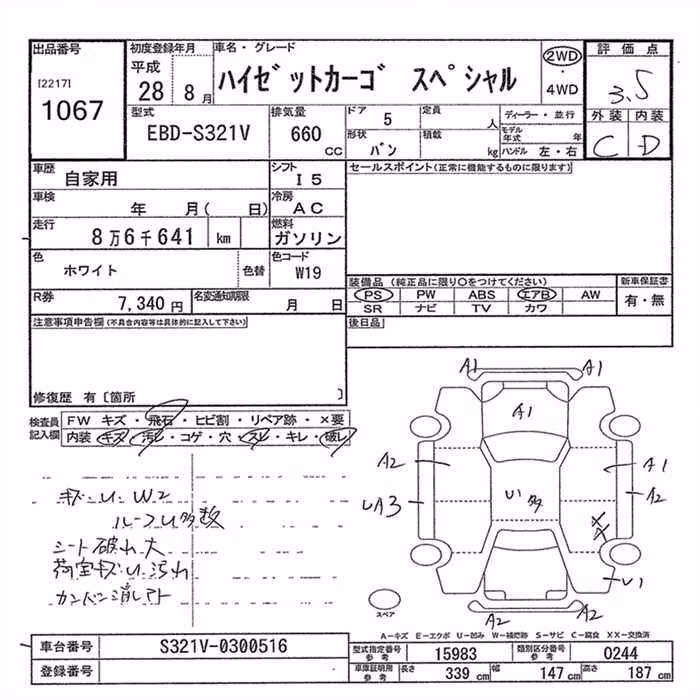 出品番号
[2217]
1067
初度登録年月
平成
28 8 月
車名・グレード
ハイゼットカーゴ スペシャル
2WD
・
4WD
評価点
3.5
外装 内装
C D
型式
EBD-S321V
排気量
660
CC
ドア
5
定員
人
形状
バン
積載
kg
ディーラー・並行
モデル年式 年
ハンドル 左・右
車歴
自家用
シフト
I5
車検
年 月( 日)
冷房
AC
走行
8万6千641 km
燃料
ガソリン
色
ホワイト
色替
色コード
W19
R券
7,340 円
名変通知期限
月 日
セールスポイント(正常に機能するものに限ります)
装備品(純正品に限り〇をつけてください)
PS PW ABS エアB AW
SR ナビ TV カワ
新車保証書
有・無
後日品
注意事項申告欄(不具合内容等は具体的に記入して下さい)
修復歴 有〔箇所 〕
検査員記入欄
FW キズ・飛石・ヒビ割・リペア跡・×要
内装 キズ・汚レ・コゲ・穴・スレ・キレ・破レ
キズ・U・W2
ルーフU多数
シート破れ大
荷室キズU汚れ
カンバン消しアト
A1
A1
A1
A2
A1
UA3
U多
A2
U1
A2
A2
スペア
A-キズ E-エクボ U-凹み W-補修跡 S-サビ C-腐食 XX-交換済
車台番号
S321V-0300516
登録番号
型式指定番号 参考
15983
類別区分番号 参考
0244
車庫証明用 参考
長さ 339 cm
幅 147 cm
高さ 187 cm